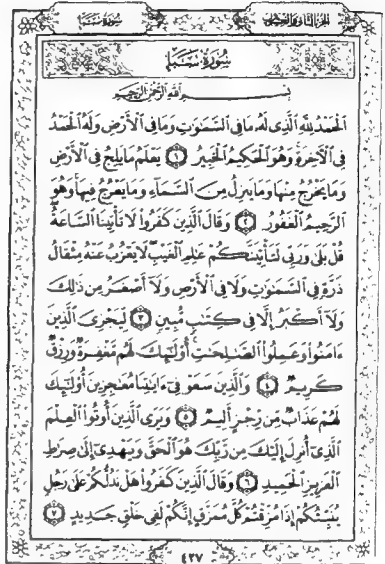 الجُزءُ الثَّانِي وَالعِشرُونَ
سُورَةُ سَبَإٍ
سُورَةُ سَبَإٍ
بِسْمِ ٱللَّهِ ٱلرَّحْمَٰنِ ٱلرَّحِيمِ
ٱلْحَمْدُ لِلَّهِ ٱلَّذِى لَهُۥ مَا فِى ٱلسَّمَٰوَٰتِ وَمَا فِى ٱلْأَرْضِ وَلَهُ ٱلْحَمْدُ
فِى ٱلْءَاخِرَةِ وَهُوَ ٱلْحَكِيمُ ٱلْخَبِيرُ ١ يَعْلَمُ مَا يَلِجُ فِى ٱلْأَرْضِ
وَمَا يَخْرُجُ مِنْهَا وَمَا يَنزِلُ مِنَ ٱلسَّمَآءِ وَمَا يَعْرُجُ فِيهَا وَهُوَ
ٱلرَّحِيمُ ٱلْغَفُورُ ٢ وَقَالَ ٱلَّذِينَ كَفَرُوا۟ لَا تَأْتِينَا ٱلسَّاعَةُ
قُلْ بَلَىٰ وَرَبِّى لَتَأْتِيَنَّكُمْ عَٰلِمِ ٱلْغَيْبِ لَا يَعْزُبُ عَنْهُ مِثْقَالُ
ذَرَّةٍ فِى ٱلسَّمَٰوَٰتِ وَلَا فِى ٱلْأَرْضِ وَلَآ أَصْغَرُ مِن ذَٰلِكَ
وَلَآ أَكْبَرُ إِلَّا فِى كِتَٰبٍ مُّبِينٍ ٣ لِّيَجْزِىَ ٱلَّذِينَ
ءَامَنُوا۟ وَعَمِلُوا۟ ٱلصَّٰلِحَٰتِ أُو۟لَٰٓئِكَ لَهُم مَّغْفِرَةٌ وَرِزْقٌ
كَرِيمٌ ٤ وَٱلَّذِينَ سَعَوْ فِىٓ ءَايَٰتِنَا مُعَٰجِزِينَ أُو۟لَٰٓئِكَ
لَهُمْ عَذَابٌ مِّن رِّجْزٍ أَلِيمٌ ٥ وَيَرَى ٱلَّذِينَ أُوتُوا۟ ٱلْعِلْمَ
ٱلَّذِىٓ أُنزِلَ إِلَيْكَ مِن رَّبِّكَ هُوَ ٱلْحَقَّ وَيَهْدِىٓ إِلَىٰ صِرَٰطِ
ٱلْعَزِيزِ ٱلْحَمِيدِ ٦ وَقَالَ ٱلَّذِينَ كَفَرُوا۟ هَلْ نَدُلُّكُمْ عَلَىٰ رَجُلٍ
يُنَبِّئُكُمْ إِذَا مُزِّقْتُمْ كُلَّ مُمَزَّقٍ إِنَّكُمْ لَفِى خَلْقٍ جَدِيدٍ ٧
٤٢٧